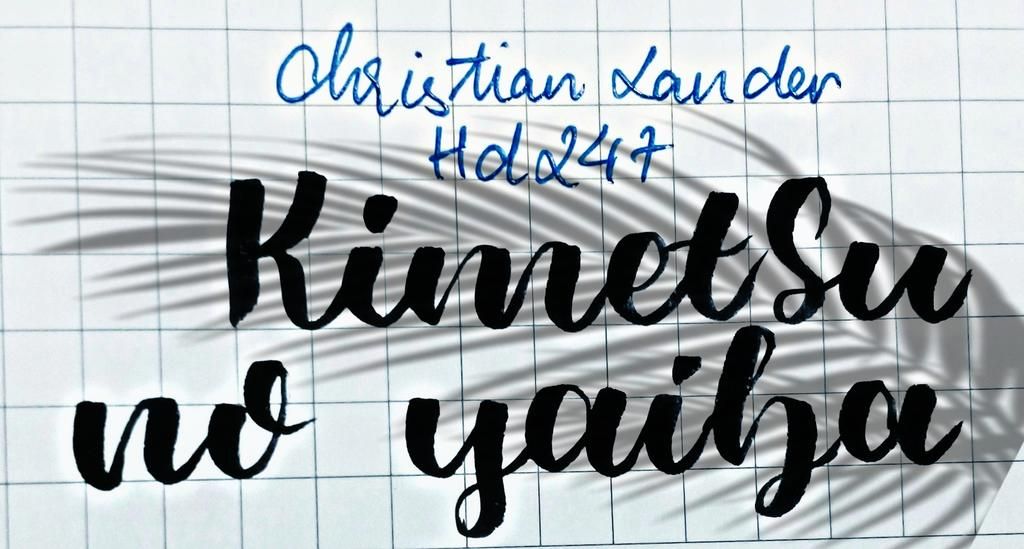 Christian Lander
Hd247
KimetSu
no yaiba